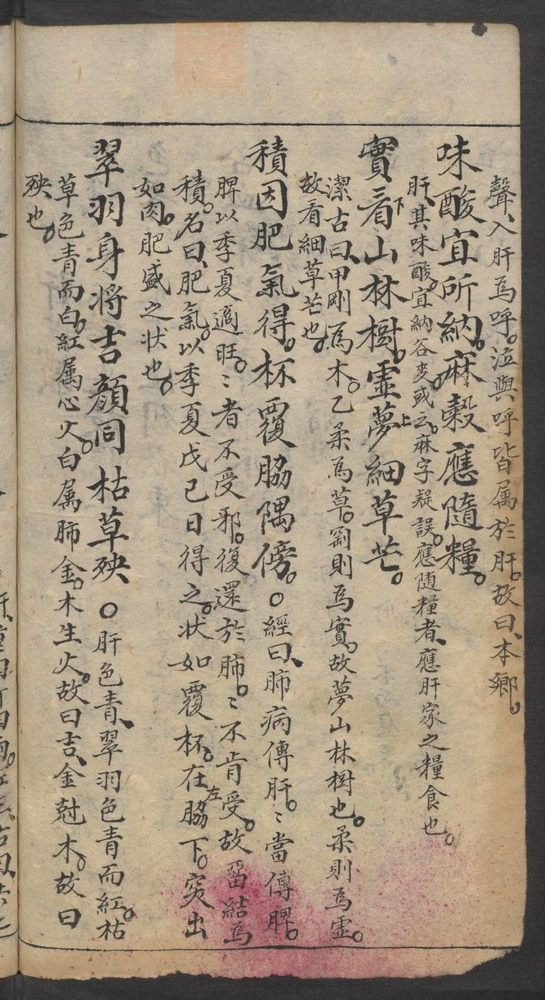 聲、入肝爲呼。泣與呼皆属於肝。故曰、本鄉。
味酸宜所納。麻穀應隨糧。
肝、其味酸、宜納谷麦。或云、麻字疑誤。應随糧者、應肝家之糧食也。
實看下山林樹。虚夢上細草芒。
潔古曰、甲剛爲木。乙柔爲草。剛則爲實。故夢山林樹也。柔則爲虚。
故看細草芒也。
積因肥氣得。杯覆脇隅傍。○經曰、肺病傳肝。〻當傳脾。
脾以季夏適旺。〻者不受邪。復還於肺。〻不肯受。故留結爲
積。名曰、肥氣。以季夏戊己日得之。状如覆杯。在左脇下。突出
如肉。肥盛之状也。
翠羽身将吉顔同枯草殃○肝色青、翠羽色青而紅。枯
草色青而白。紅属心火。白属肺金。木生火。故曰吉、金尅木。故曰
殃也。